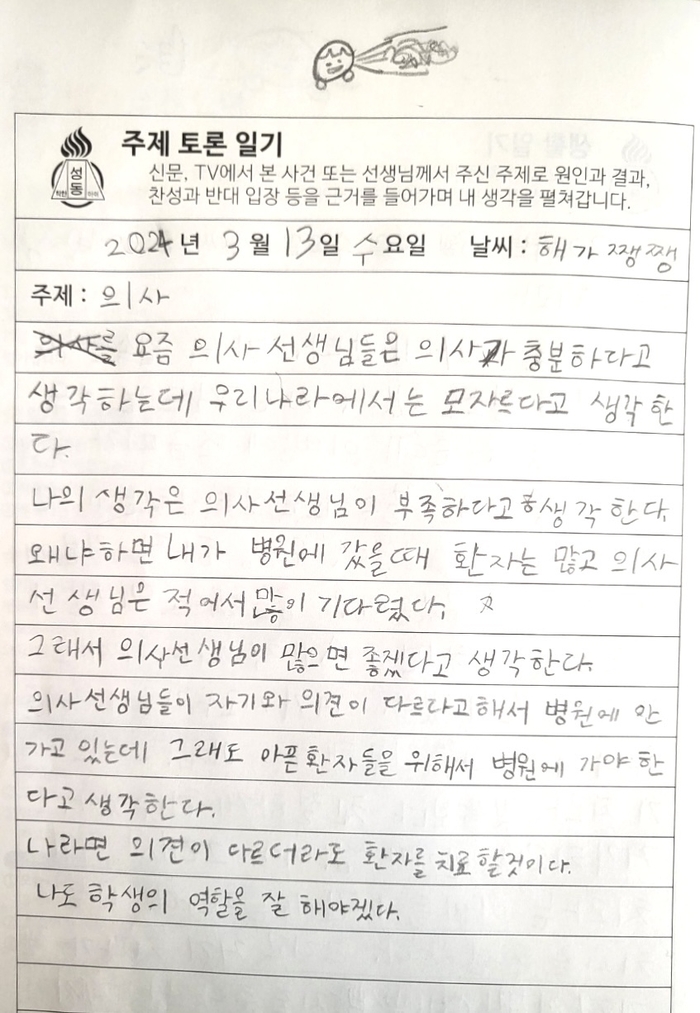 주제 토론 일기
신문, TV에서 본 사건 또는 선생님께서 주신 주제로 원인과 결과,
찬성과 반대 입장 등을 근거를 들어가며 내 생각을 펼쳐갑니다.
성동
2024년 3월 13일 수요일 날씨 : 해가 쨍쨍
주제 : 의사
요즘 의사 선생님들은 의사가 충분하다고
생각하는데 우리나라에서는 모자르다고 생각한
다.
나의 생각은 의사선생님이 부족하다고 생각한다.
왜냐하면 내가 병원에 갔을때 환자는 많고 의사
선생님은 적어서 많이 기다렸다.
그래서 의사선생님이 많으면 좋겠다고 생각한다.
의사선생님들이 자기와 의견이 다르다고해서 병원에 안
가고 있는데 그래도 아픈환자들을 위해서 병원에 가야 한
다고 생각한다.
나라면 의견이 다르더라도 환자를 치료할것이다.
나도 학생의 역할을 잘 해야겠다.